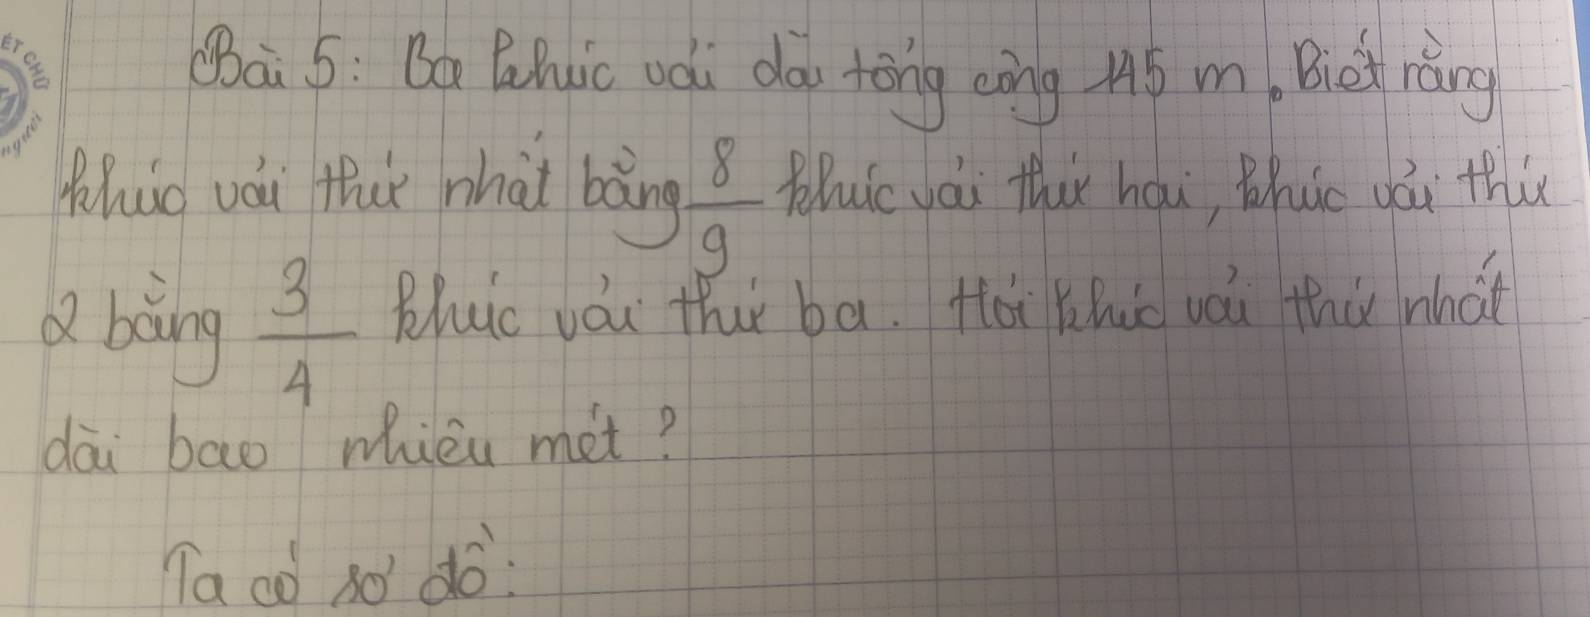 ẾT CHỮ
người
Bài 5: Ba khúc vải dài tổng cộng 145 m. Biết rằng
khúc vải thứ nhất bằng 8/9 khúc vải thứ hai, khúc vải thứ
2 bằng 3/4 khúc vải thứ ba. Hỏi khúc vải thứ nhất
dài bao nhiêu mét?
Ta có sơ đồ: